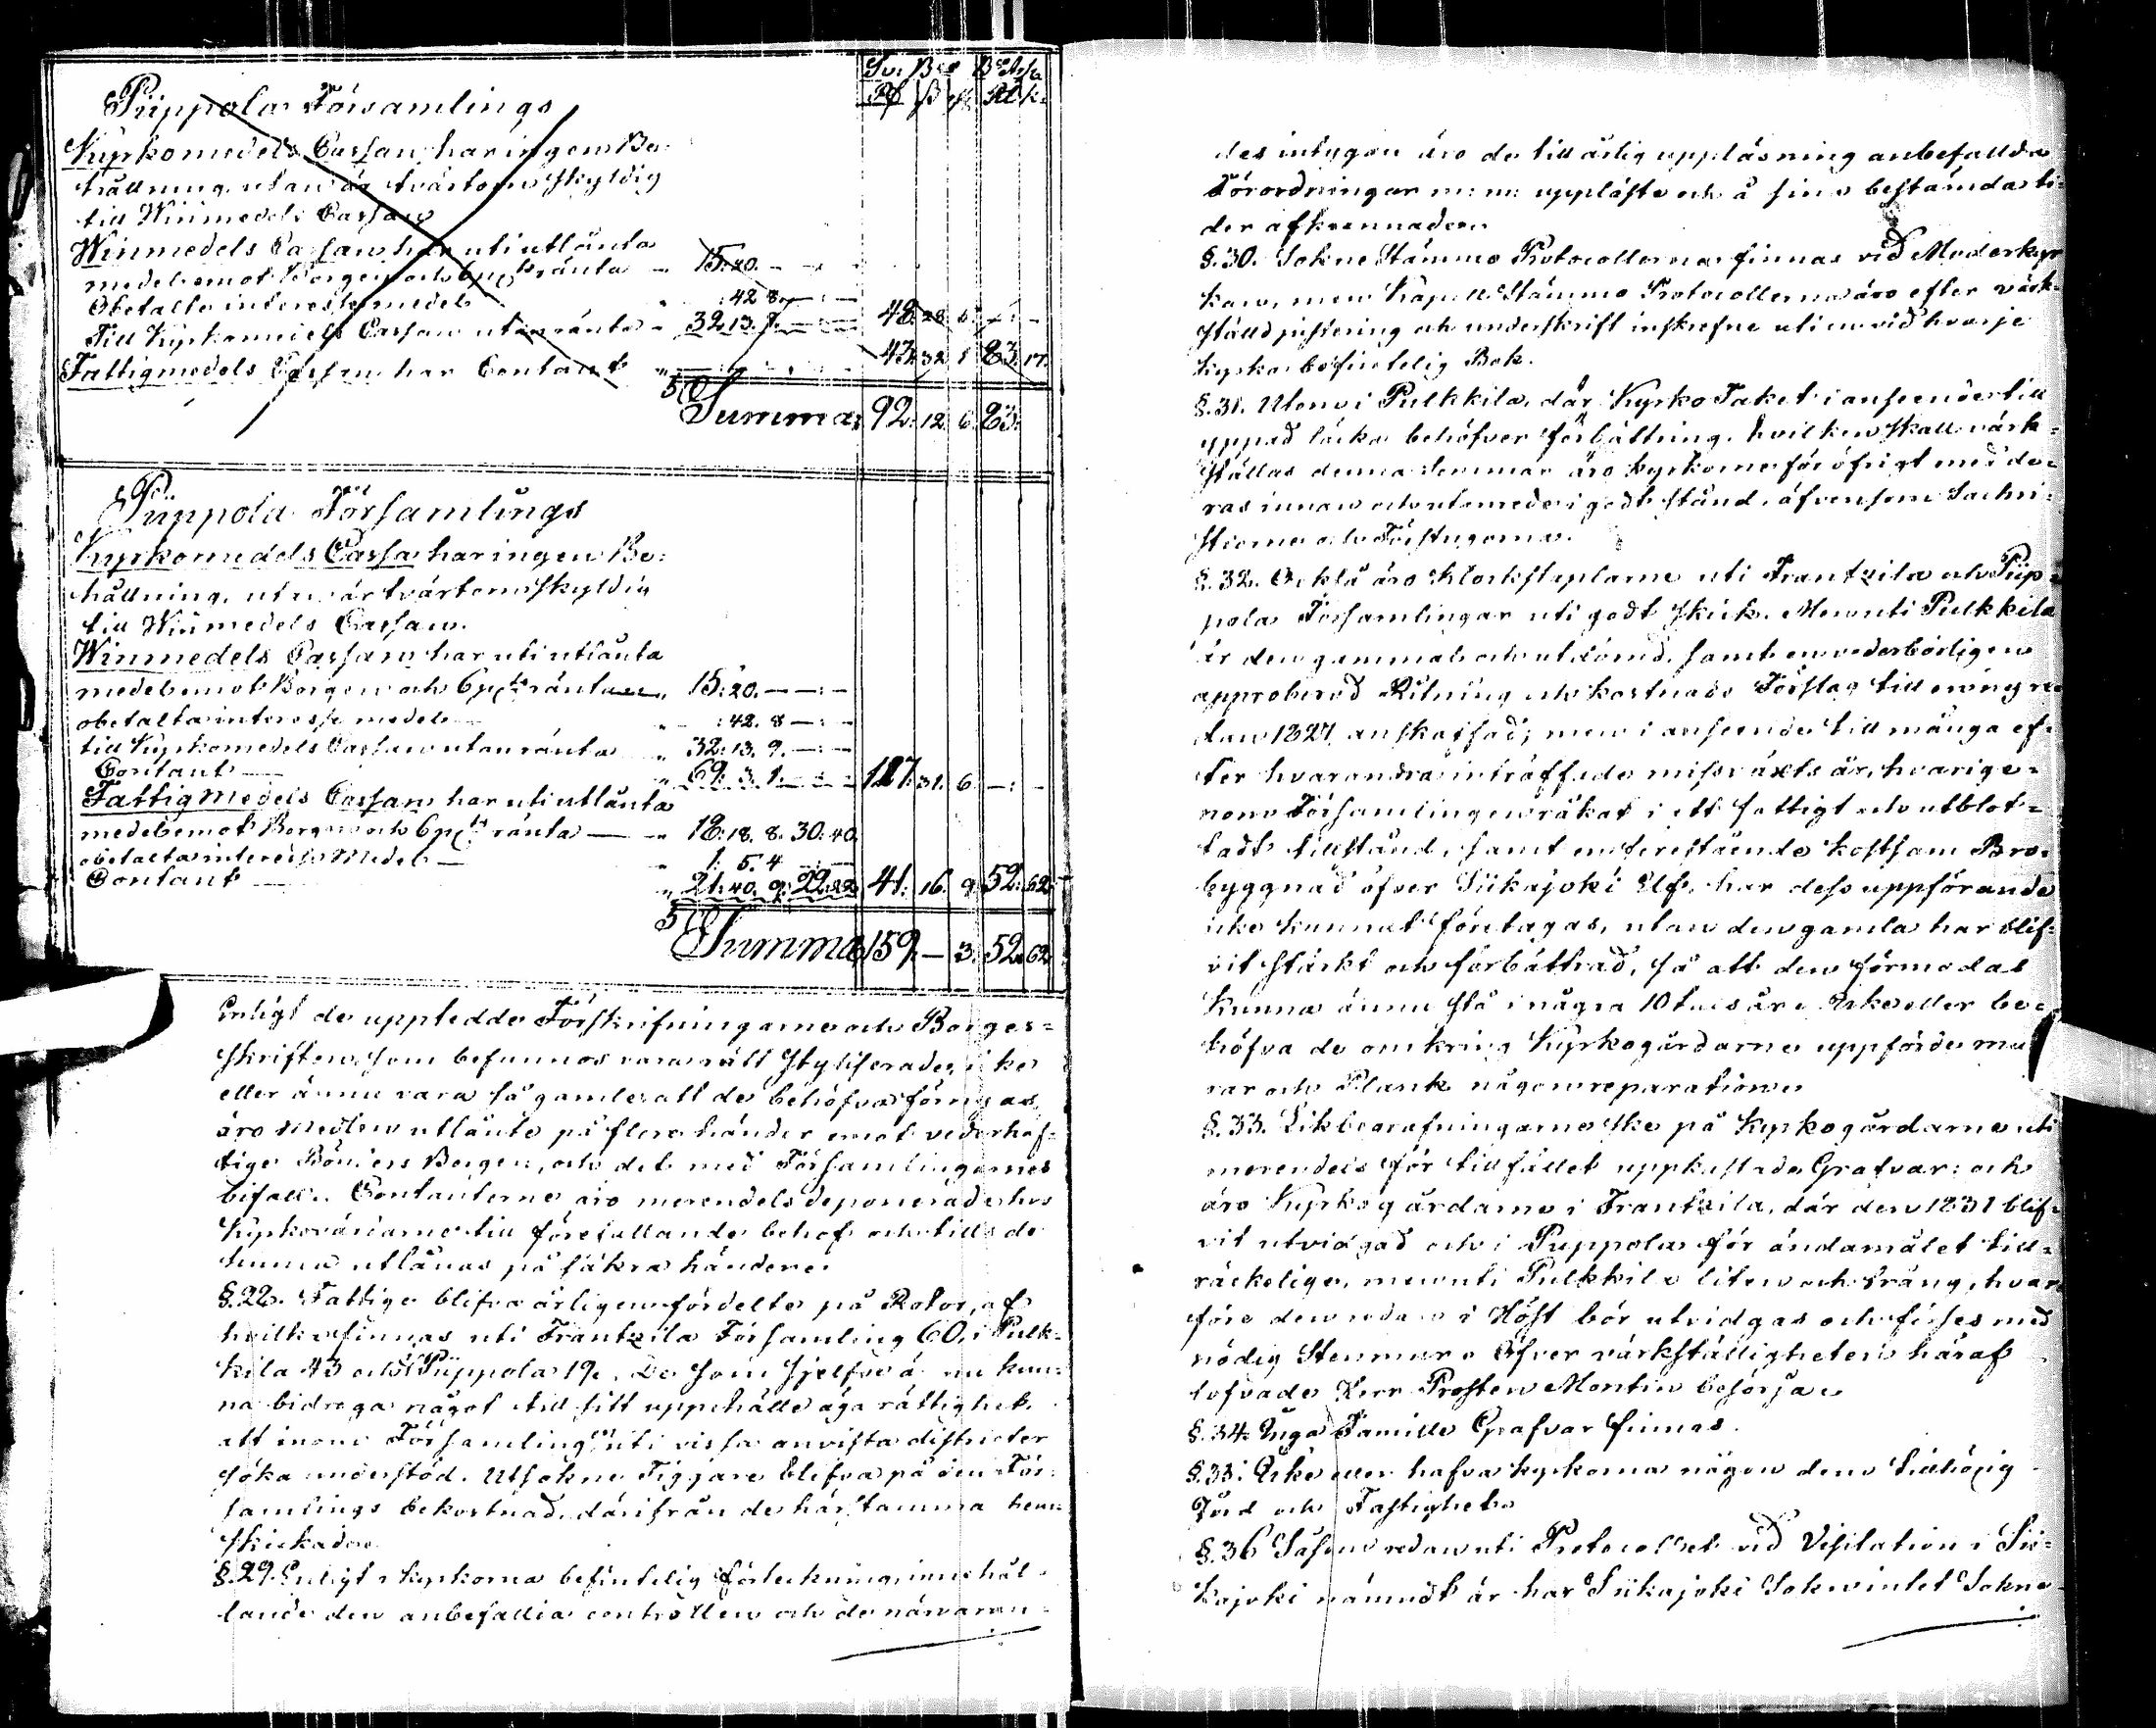 Sv: Bco B:co Assig
Rd ß r/. Rb k.
Piippola Församlings
Kyrkomedels Cassan har ingen Be-
hållning, utan är tvärtom skyldig
till Winmedels Cassan
Winmedels Cassan har uti utlånta
medel emot Borgen och 6 pCt ränta 15: 20. — — : —
Obetalte interesse medel : 42. 8. — : —
Till Kyrkomedels Cassan utan ränta 32. 13. 9. — : — 48. 28. 5. — : —
Fattigmedels Cassan har Contant 43: 32. 1. 23. 17.
Summa 92. 12. 6. 23:
Piippola Församlings
Kyrkomedels Cassa har ingen Be-
hållning, utan är tvärtom skyldig
till Winmedels Cassan.
Winmedels Cassan har uti utlånta
medel emot Borgen och 6 pCt ränta 15: 20. — — : —
obetalta interesse medel : 42. 8 — : —
till Kyrkomedels Cassan utan ränta 32: 13. 9. — : —
Contant 69: 3. 1. — : — 117: 31. 6. — : —
Fattig Medels Cassan har uti utlånta
medel emot Borgen och 6 pCt ränta 18: 18. 8. 30: 40.
obetalta interesse Medel 1. 5. 4 — : —
Contant 21: 40. 9. 22: 22 41: 16. 9. 52: 62
Summa 159. — 3. 52. 62
Enligt de uppledde Förskrifningarne och Borges-
skriften, som befunnos vara rätt styliserade, icke
eller ännu vara så gamle att de behöfva förnyas,
äro medlen utlånte på flere händer emot vederhäf-
tige Bönders Borgen, och det med Församlingarnes
bifall. Contanterne äro merendels deponerade hos
Kyrkovärdarne till förefallande behof och tills de
kunna utlånas på säkra händer.
§. 22. Fattige blifva årligen fördelte på Rotor, af
hvilka finnas uti Frantzila Församling 60, i Pulk-
kila 43 och Piippola 19. De som sjelfve ännu kun-
na bidraga något till sitt uppehälle äga rättighet,
att inom Församlingen uti vissa anvista districter
söka understöd. Utsokne Tiggare blifva på den För-
samlings bekostnad, därifrån de härstamma hem-
skickade.
§. 29. Enligt i kyrkorna befintelig förteckning, innehål-
lande den anbefallda controllen och de närvaran-
des intygan äro de till årlig uppläsning anbefallda
Förordningar m: m: uppläste och å sina bestämda ti-
der afkunnade.
§. 30. Sokne Stämmo Protocollerna finnas vid Moderkyr-
kan, men Kapell Stämmo Protocollerna äro efter värk-
ställd justering och underskrift inskrefne uti en vid hvarje
kyrka befintelig Bok.
§. 31. Utom i Pulkkila, där Kyrko Taket i anseende till
yppad läcka behöfver förbättring, hvilken skall värk-
ställas denna Sommar äro kyrkorne för öfrigt med de-
ras innan och utanrede i godt stånd, äfvensom Sacri-
stierne och Förstugorna.
§. 32. Ocklå äro klockstaplarne uti Frantzila och Piip-
pola Församlingar uti godt skick. Men uti Pulkkila
är den gammal och utdömd, samt en vederbörligen
approberad Ritning och kostnads Förslag till en ny re-
dan 1827 anskaffad; men i anseende till många ef-
ter hvarandra inträffade missväxts år, hvarige-
nom Församlingen råkat i ett fattigt och utblot-
tadt tillstånd, samt en förestående kostsam Bro-
byggnad öfver Siikajoki Elf, har dess uppförande
icke kunnat företagas, utan den gamla har blif-
vit stärkt och förbättrad, så att den förmodas
kunna ännu stå i några 10tals år. Icke eller be-
höfva de omkring Kyrkogårdarne uppförde mu-
rar och Plank någon reparation.
§. 33. Likbegrafningarne ske på Kyrkogårdarne uti
merendels för tillfället uppkastade Grafvar: och
äro Kyrkogårdarne i Frantzila, där den 1831 blif-
vit utvidgad och i Piippola för ändamålet till-
räckelige, men uti Pulkkila liten och trång, hvar-
före den redan i Höst bör utvidgas och förses med
nödig Stenmur. Öfver värkställigheten häraf
lofvade Herr Prosten Montin besörja.
§. 34. Inga Famille Grafvar finnas.
§. 35. Icke eller hafva kyrkorna någon dem tillhörig
Jord och Fastighet.
§. 36 Såsom redan uti Protocollet vid Visitation i Sii-
kajoki nämndt är har Siikajoki Sokn intet Sokne-